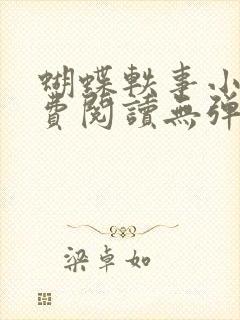 蝴蝶軼事小
費閱讀無彈
梁卓如